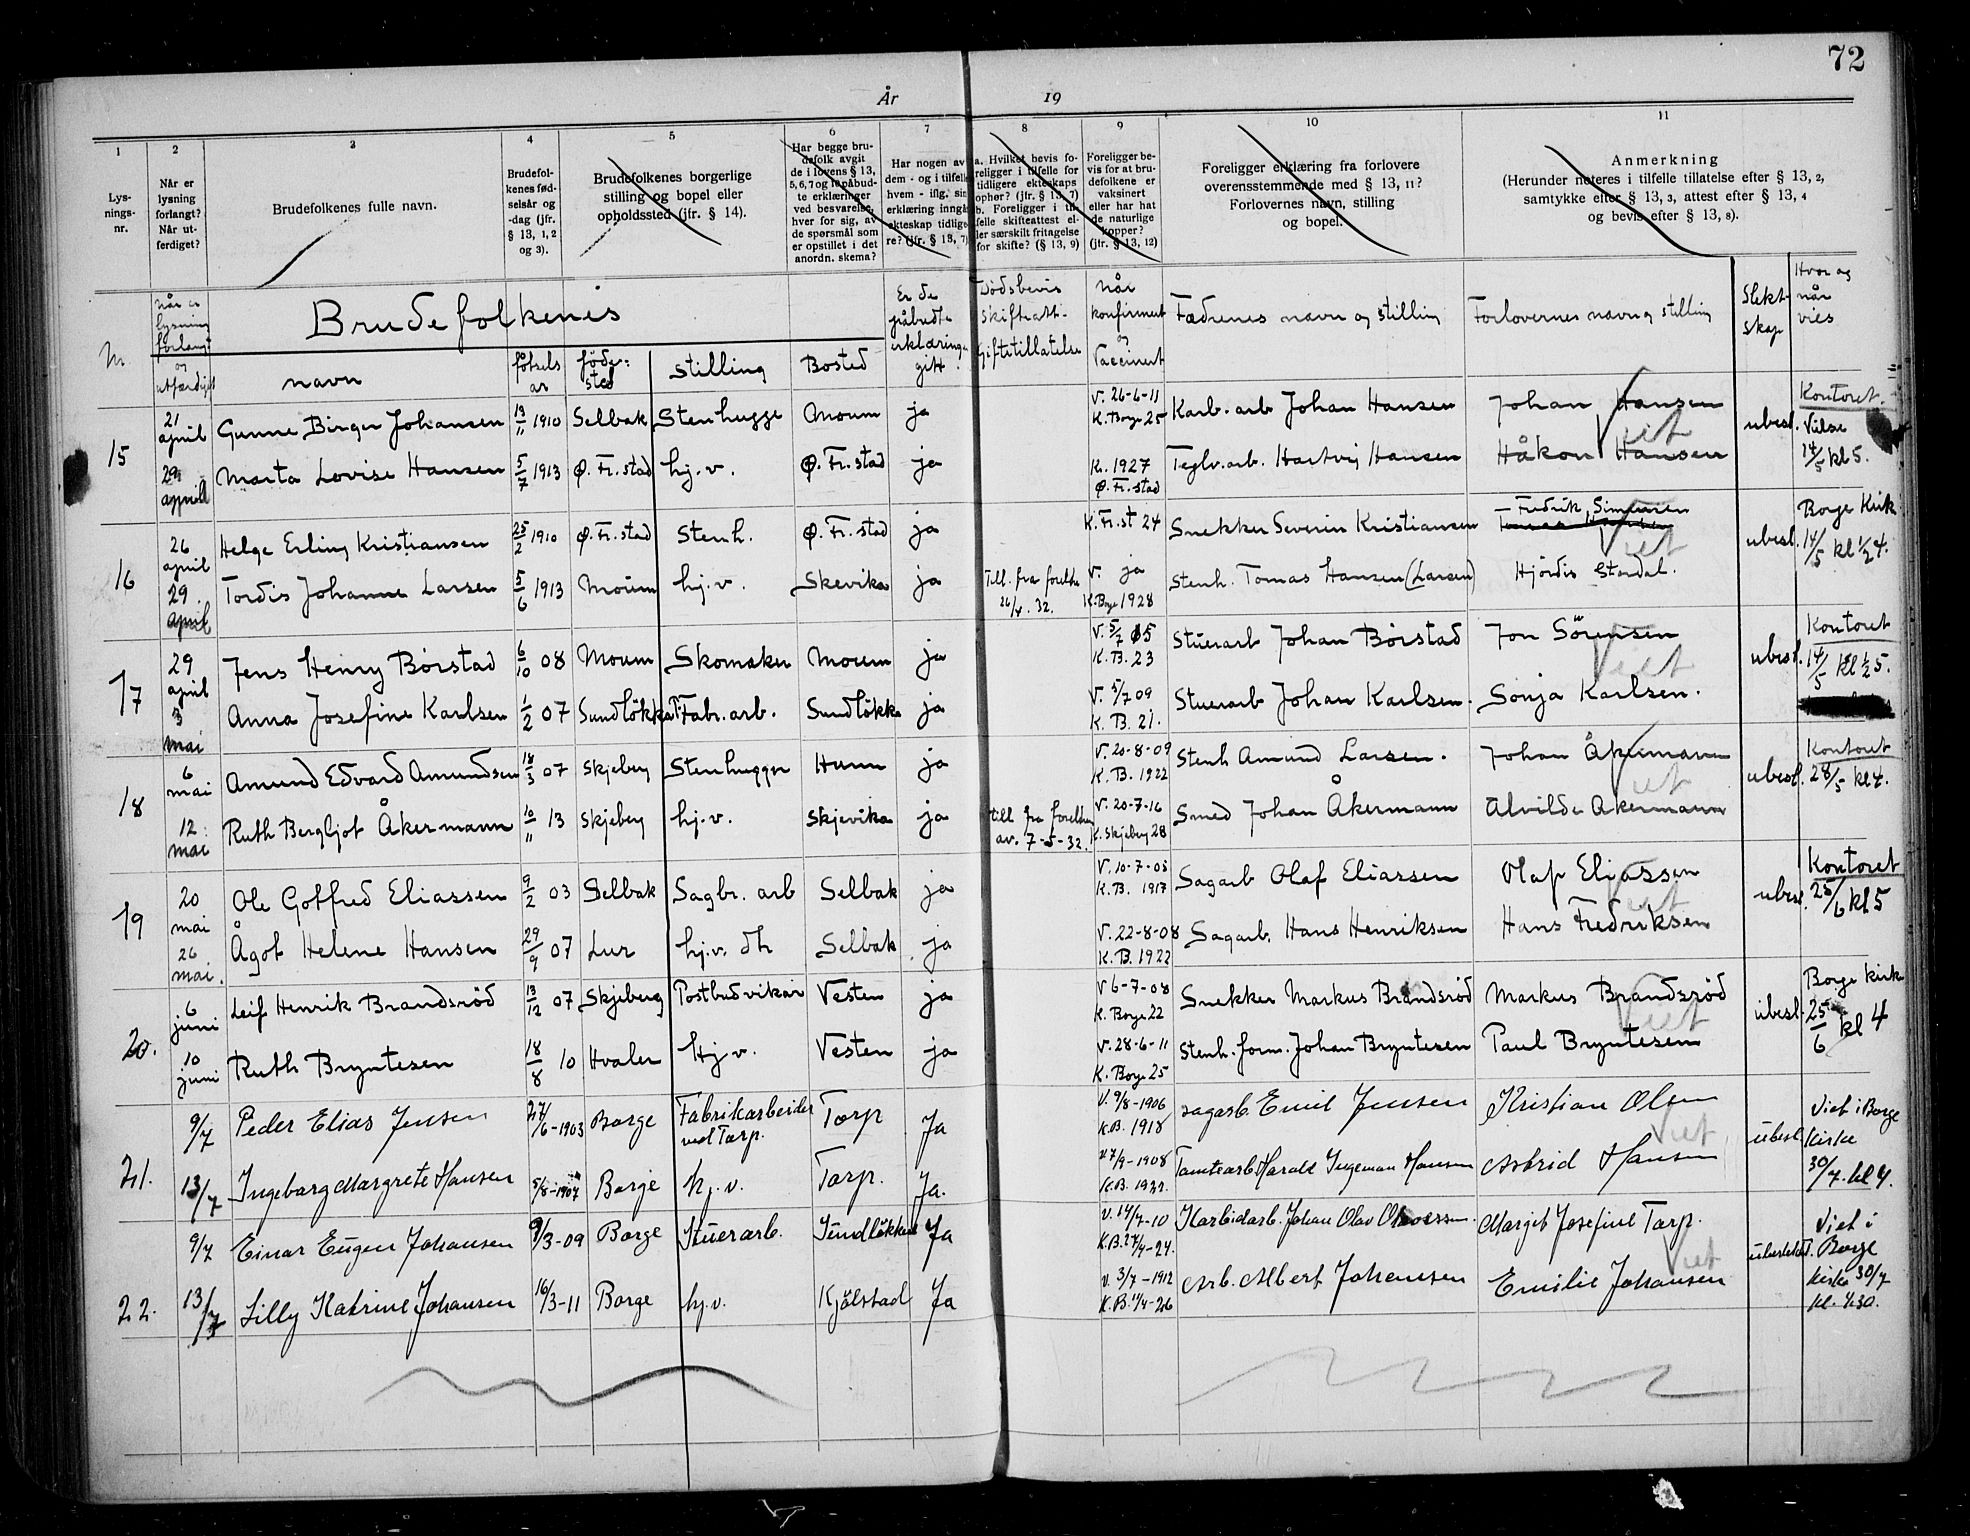 72
År 19
1 2 3 4 5 6 7 8 9 10 11
Lys-
nings-
nr.
Når er
lysning
forlangt?
Når ut-
ferdiget?
Brudefolkenes fulle navn.
Brudefol-
kenes fød-
selsår og
-dag (jfr.
§ 13, 1, 2
og 3).
Brudefolkenes borgerlige
stilling og bopel eller
opholdssted (jfr. § 14).
Har begge bru-
defolk avgit
de i lovens § 13,
5, 6, 7 og 10 påbud-
te erklæringer
ved besvarelse,
hver for sig, av
de spørsmål som
er opstillet i det
anordn. skema?
Har nogen av
dem - og i tilfelle
hvem - iflg. sin
erklæring inngå
ekteskap tidlige-
re? (jfr. § 13, 7)
a. Hvilket bevis fo-
religger i tilfelle for
tidligere ekteskaps
ophør? (jfr. § 13, 7)
b. Foreligger i til-
felle skifteattest el-
ler særskilt fritagelse
for skifte? (§ 13, 9)
Foreligger be-
vis for at bru-
defolkene er
vaksinert
eller har hat
de naturlige
kopper?
(jfr. § 13, 12)
Foreligger erklæring fra forlovere
overensstemmende med § 13, 11?
Forlovernes navn, stilling
og bopel.
Anmerkning
(Herunder noteres i tilfelle tillatelse efter § 13, 2,
samtykke efter § 13, 3, attest efter § 13, 4
og bevis efter § 13, 8).
Nr.
når er
lysning
forlangt
og
utfærdiget
Brudefolkenes
navn
fötsels
år
föde-
sted
stilling
Bosted
Er de
påbudte
erklæringer
gitt.
Dödsbevis
skifteatt-
giftetillatelse
når
konfirmert
og
Vaccinert
Fædrenes navn og stilling
Forlovernes navn og stilling
Slekt-
skap
Hvor og
når
vies
15 21 april Gunne Birger Johansen 13/11 1910 Selbak Stenhugge Moum ja V. 26-6-11 K. Borge 25 Karb. arb Johan Hansen Johan Hansen ubesl. Kontoret. Vilse 14/5 kl 5.
29 april Marta Lovise Hansen 5/7 1913 Ø. Fr. stad hj. v. Ø. Fr. stad ja K. 1927 Ø. Fr. stad Teglv. arb. Hartvig Hansen Håkon Hansen
viet
16 26 april Helge Erling Kristiansen 25/2 1910 Ø. Fr. stad Stenh. Ø. Fr. stad ja K. Fr. st 24 Snekker Severin Kristiansen Fredrik Simensen ubesl. Borge Kirk 14/5 kl ½ 4.
29. april Tordis Johanne Larsen 5/6 1913 Moum hj. v. Skevika ja Till. fra foreldre 26/4. 32. V. ja K. Borge 1928 Stenh. Tomas Hansen (Larsen) Hjördis Stordal.
viet
17 29 april Jens Henry Börstad 6/10 08 Moum Skomaker Moum ja V. 5/7 05 K. B. 23 Stuerarb Johan Börstad Jon Sörensen ubesl. Kontoret 14/5 kl ½ 5.
3 mai Anna Josefine Karlsen 1/2 07 Sundlökka Fabr. arb. Sundlökka ja V. 5/7 09 K. B. 21. Stuerarb Johan Karlsen. Sonja Karlsen.
viet
18 6 mai Amund Edvard Amundsen 18/3 07 Skjeberg Stenhugger Hunn ja V. 20-8-09 K. B. 1922 Stenh Amund Larsen. Johan Åkermann ubesl. Kontoret 28/5 kl 4.
12 mai Ruth Bergljot Åkermann 10/11 13 Skjeberg hj. v. Skjevika ja till fra foreldre av. 7-5-32. V. 20-7-16 K. Skjeberg 28 Smed Johan Åkermann Alvilde Åkermann
viet
19 20 mai Ole Gotfred Eliassen 9/2 03 Selbak Sagbr. arb Selbak ja V. 10-7-03 K. B. 1917 Sagarb Olaf Eliassen Olaf Eliassen ubesl. Kontoret 25/6 kl 5
26 mai. Ågot Helene Hansen 29/9 07 Lur hj. v. dh Selbak ja V. 22-8-08 K. B. 1922 Sagarb. Hans Henriksen Hans Fredriksen
viet
20. 6 juni Leif Henrik Brandsröd 13/12 07 Skjeberg Postbudvikar Vesten ja V 6-7-08 K. Borge 22 Snekker Markus Brandsröd Markus Brandsröd ubesl. Borge Kirke 25/6 kl 4
10 juni Ruth Bryntesen 18/8 10 Hvaler Hj. v. Vesten ja V. 28-6-11 K. Borge 25 Stenh. form. Johan Bryntesen Paul Bryntesen
viet
21. 9/7 Peder Elias Jensen 27/6-1903 Borge Fabrikarbeider ved Torp. Torp Ja V. 9/8-1906 K.B. 1918 sagarb. Emil Jensen Kristian Olsen ubesl. Viet i Borge Kirke 30/7. kl 4.
13/7 Ingeborg Margrete Hansen 5/8-1907 Borge hj. v. Torp. Ja. v 7/9-1908 K.B. 1922. Tomtearb Harald Ingeman Hansen Astrid Hansen
Viet
22. 9/7 Einar Eugen Johansen 9/3-09 Borge Stuerarb. Sundlökka Ja V. 14/7-10 K.B. 27/4-24. Karbidarb. Johan Olav Margit Josefine Torp. ubeslektet. Viet i Borge Kirke 30/7 kl. 4.30.
13/7 Lilly Katrine Johansen 16/3-11 Borge hj. v. Kjölstad Ja v. 3/7-1912 K.B. 11/4-26 Arb. Albert Johansen Emilie Johansen
Viet